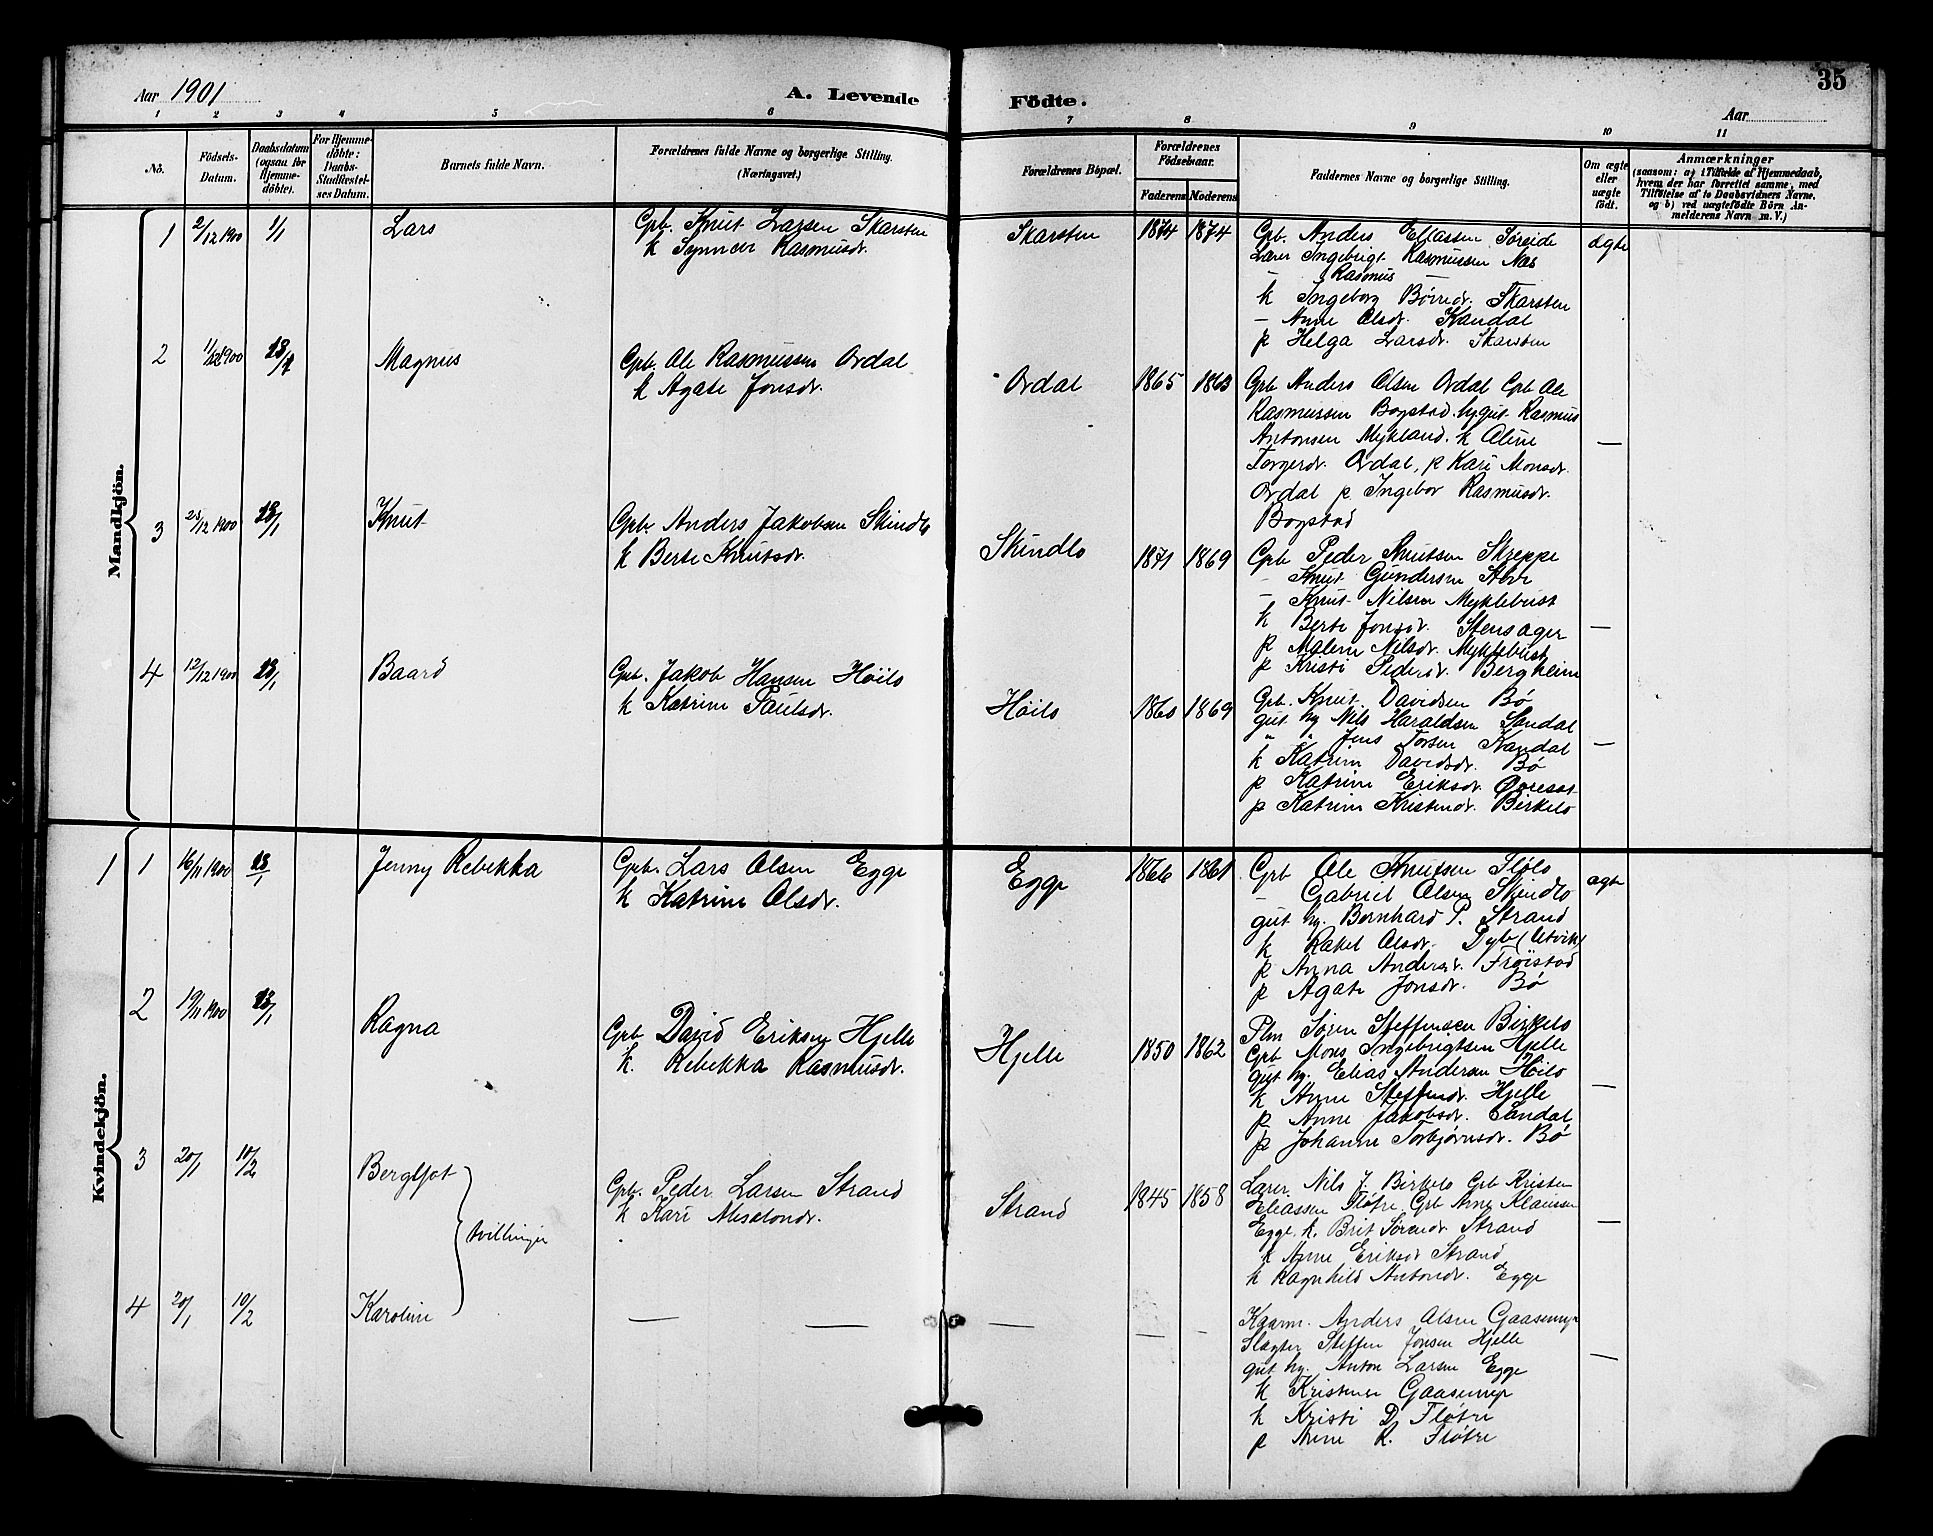 35
Aar 1901
A. Levende
Födte.
Aar
1 2 3 4 5 6 7 8 9 10 11
No.
Födsels-
Datum.
Daabsdatum
(ogsaa for
Hjemme-
döbte).
For Hjemme-
döbte:
Daabs-
Stadfæstel-
ses Datum.
Barnets fulde Navn.
Forældrenes fulde Navne og borgerlige Stilling.
(Næringsvei.)
Forældrenes Böpæl.
Forældrenes
Födselsaar.
Faderens
Moderens
Faddernes Navne og borgerlige Stilling.
Om ægte
eller
uægte
födt.
Anmærkninger
(saasom: a) i Tilfælde af Hjemmedaab,
hvem der har forrettet samme, med
Tilföielse af to Daabsvidners Navne,
og b) ved uægtefödte Börn An-
melderens Navn m. V.)
Mandkjön.
1 2/12 1900 1/1 Lars
Gpb. Knut Larsen Skarsten
k Synneve Rasmusdr.
Skarsten 1874 1874
Gpb. Anders Eliassen Søreide
Lærer Ingebrigt Rasmussen Næs
— Rasmus —
k Ingeborg Børredr. Skarsten
— Anne Olsdr. Kandal
p Helga Larsdr. Skarsten
ægte
2 11/12 1900 13/1 Magnus
Gpb. Ole Rasmussen Ordal
k Agate Jonsdr.
Ordal 1865 1863
Gpb Anders Olsen Ordal Gpb Ole
Rasmussen Bogstad. hy gut Rasmus
Antonsen Mykland. k Oline
Torgerdr. Ordal, p Kari Monsdr.
Ordal p Ingebor Rasmusdr.
Bogstad
—
3 25/12 1900 13/1 Knut
Gpb. Anders Jakobsen Skindlo
k Berte Knutsdr.
Skindlo 1871 1869
Gpb Peder Knutsen Skreppe
— Knut Gundersen
— Knut Nilsen Myklebust
k Berte Jonsdr. Stensager
p Malene Nilsdr. Myklebust
p Kristi Pedersdr. Bergheim
—
4 12/12 1900 13/1 Baard
Gpb. Jakob Hansen Høilo
k Katrine Paulsdr.
Høilo 1860 1869
Gpb. Knut Davidsen Bø
gut hy Nils Haraldsen Sandal
" " Jens Torsen Kandal
k Katrine Davidsdr. Bø
p Katrine Eriksdr.
p Katrine Kristendr. Birkelo
—
Kvindekjön.
1 1 16/11 1900 13/1 Jenny Rebekka
Gpb. Lars Olsen Egge
k Katrine Olsdr.
Egge 1866 1861
Gpb Ole Knutsen Flølo
— Gabriel Olsen Skindlo
gut hy. Bernhard P. Strand
k Rakel Olsdr. Dyb (Utvik)
p Anna Andersdr. Frøistad
p Agate Jonsdr. Bø
ægte
2 19/11 1900 13/1 Ragna
Gpb David Eriksen Hjelle
k. Rebekka Rasmusdr.
Hjelle 1850 1862
Plm Søren Steffensen Birkelo
Gpb Mons Ingebrigtsen Hjelle
gut hy. Elias Andersen Høilo
k Anne Steffendr. Hjelle
p. Anne Jakobsdr. Sandal
p Johanne Torbjørnsdr. Bø
—
3 20/1 10/2 Bergljot
tvillinger
Gpb. Peder Larsen Strand
k Kari Absalondr.
Strand 1845 1858
Lærer Nils J. Birkelo Gpb Kristen
Eliassen Fløtre Gpb Arne Klaussen
Egge. k. Brit Sørendr Strand
k Anne Eriksdr Strand
k Ragnhild Antondr. Egge
—
4 20/1 10/2 Karoline
— —
—
— —
Kaarm. Anders Olsen Gaasemyr
Slagter Steffen Jonsen Hjelle
gut hy. Anton Larsen Egge
k Kristense Gaasemyr
k Kristi D. Fløtre
p Anne R. Fløtre
—